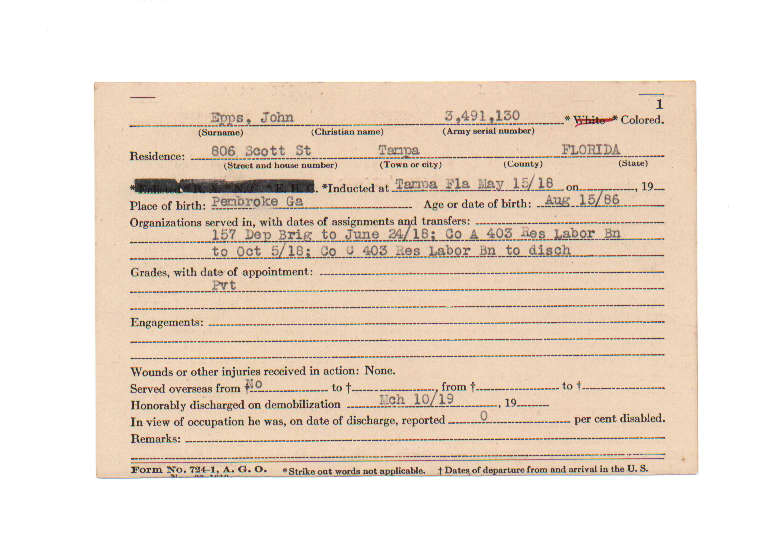 1
Epps, John 3,491,130 * White * Colored.
(Surname) (Christian name) (Army serial number)
Residence: 806 Scott St Tampa FLORIDA
(Street and house number) (Town or city) (County) (State)
*Inducted at Tampa Fla May 15/18 on , 19
Place of birth: Pembroke Ga Age or date of birth: Aug 15/86
Organizations served in, with dates of assignments and transfers:
157 Dep Brig to June 24/18; Co A 403 Res Labor Bn
to Oct 5/18; Co C 403 Res Labor Bn to disch
Grades, with date of appointment:
Pvt
Engagements:
Wounds or other injuries received in action: None.
Served overseas from † No to † , from † to †
Honorably discharged on demobilization Mch 10/19 , 19
In view of occupation he was, on date of discharge, reported 0 per cent disabled.
Remarks:
Form No. 724-1, A. G. O. *Strike out words not applicable. † Dates of departure from and arrival in the U. S.